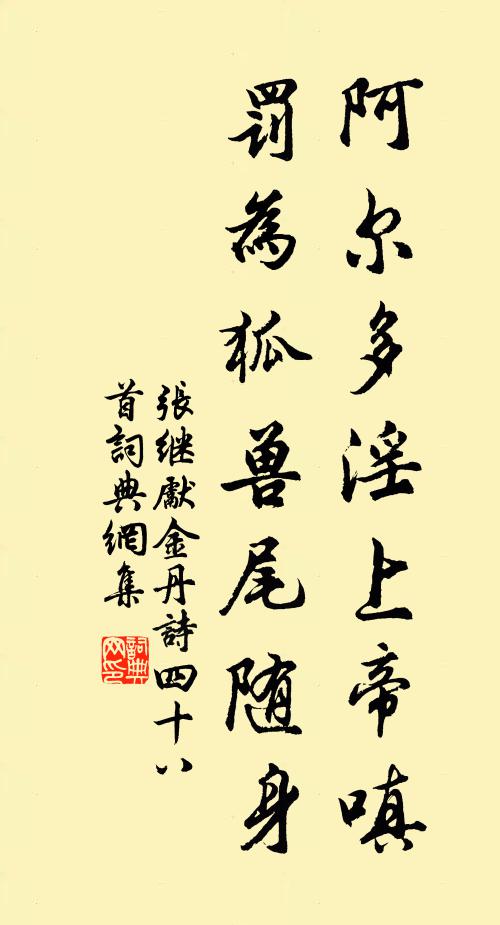 阿尔多淫上帝嗔
罰為狐兽尾随身
張继獻金丹詩四十八
首詞典網集
詞典
网印